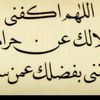 اللهم اكفني
لالك عن حرا
نني بفضلك عمن س